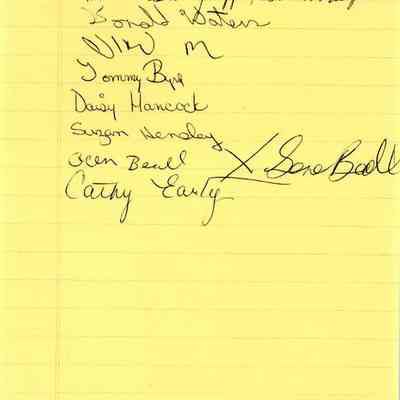 Donald Waters
Tommy Byrd
Daisy Hancock
Susan Hensley
Ocen Beall X Gene Beall
Cathy Early